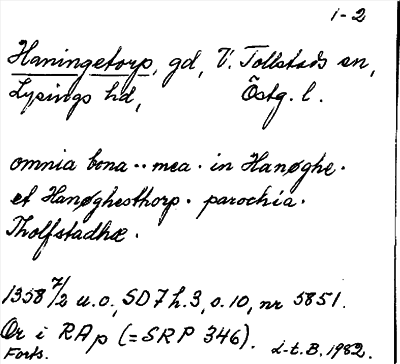 1-2
Haningetorp, gd, V. Tollstads sn,
Lysings hd, Östg. l.
omnia bona ·· mea · in Hanøghe ·
et Hanøghesthorp · parochia ·
Tholfstadhæ ·
1358 7/2 u.o, SD 7 h.3, s. 10, nr 5851.
Or i RAp (= SRP 346).
Forts. L.t.B. 1982.